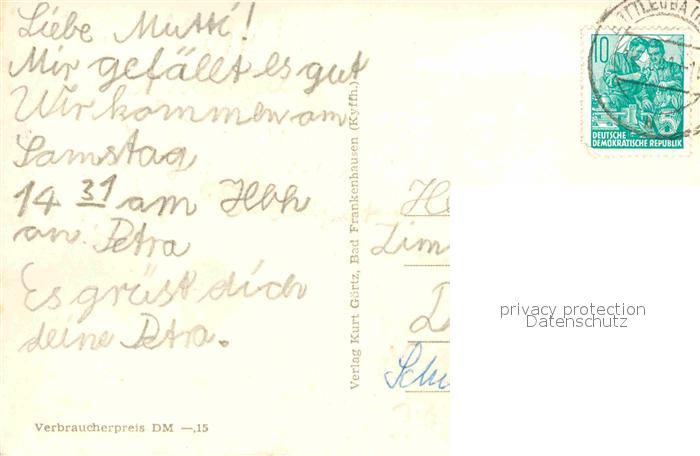 Liebe Mutti!
Mir gefällt es gut
Wir kommen am
Samstag
14 31 am Hbh
an Petra
Es grüst dich
deine Petra.
Verbraucherpreis DM —,15
Verlag Kurt Görtz, Bad Frankenhausen (Kyffh.)
10
5
DEUTSCHE
DEMOKRATISCHE REPUBLIK
Zim
privacy protection
Datenschutz